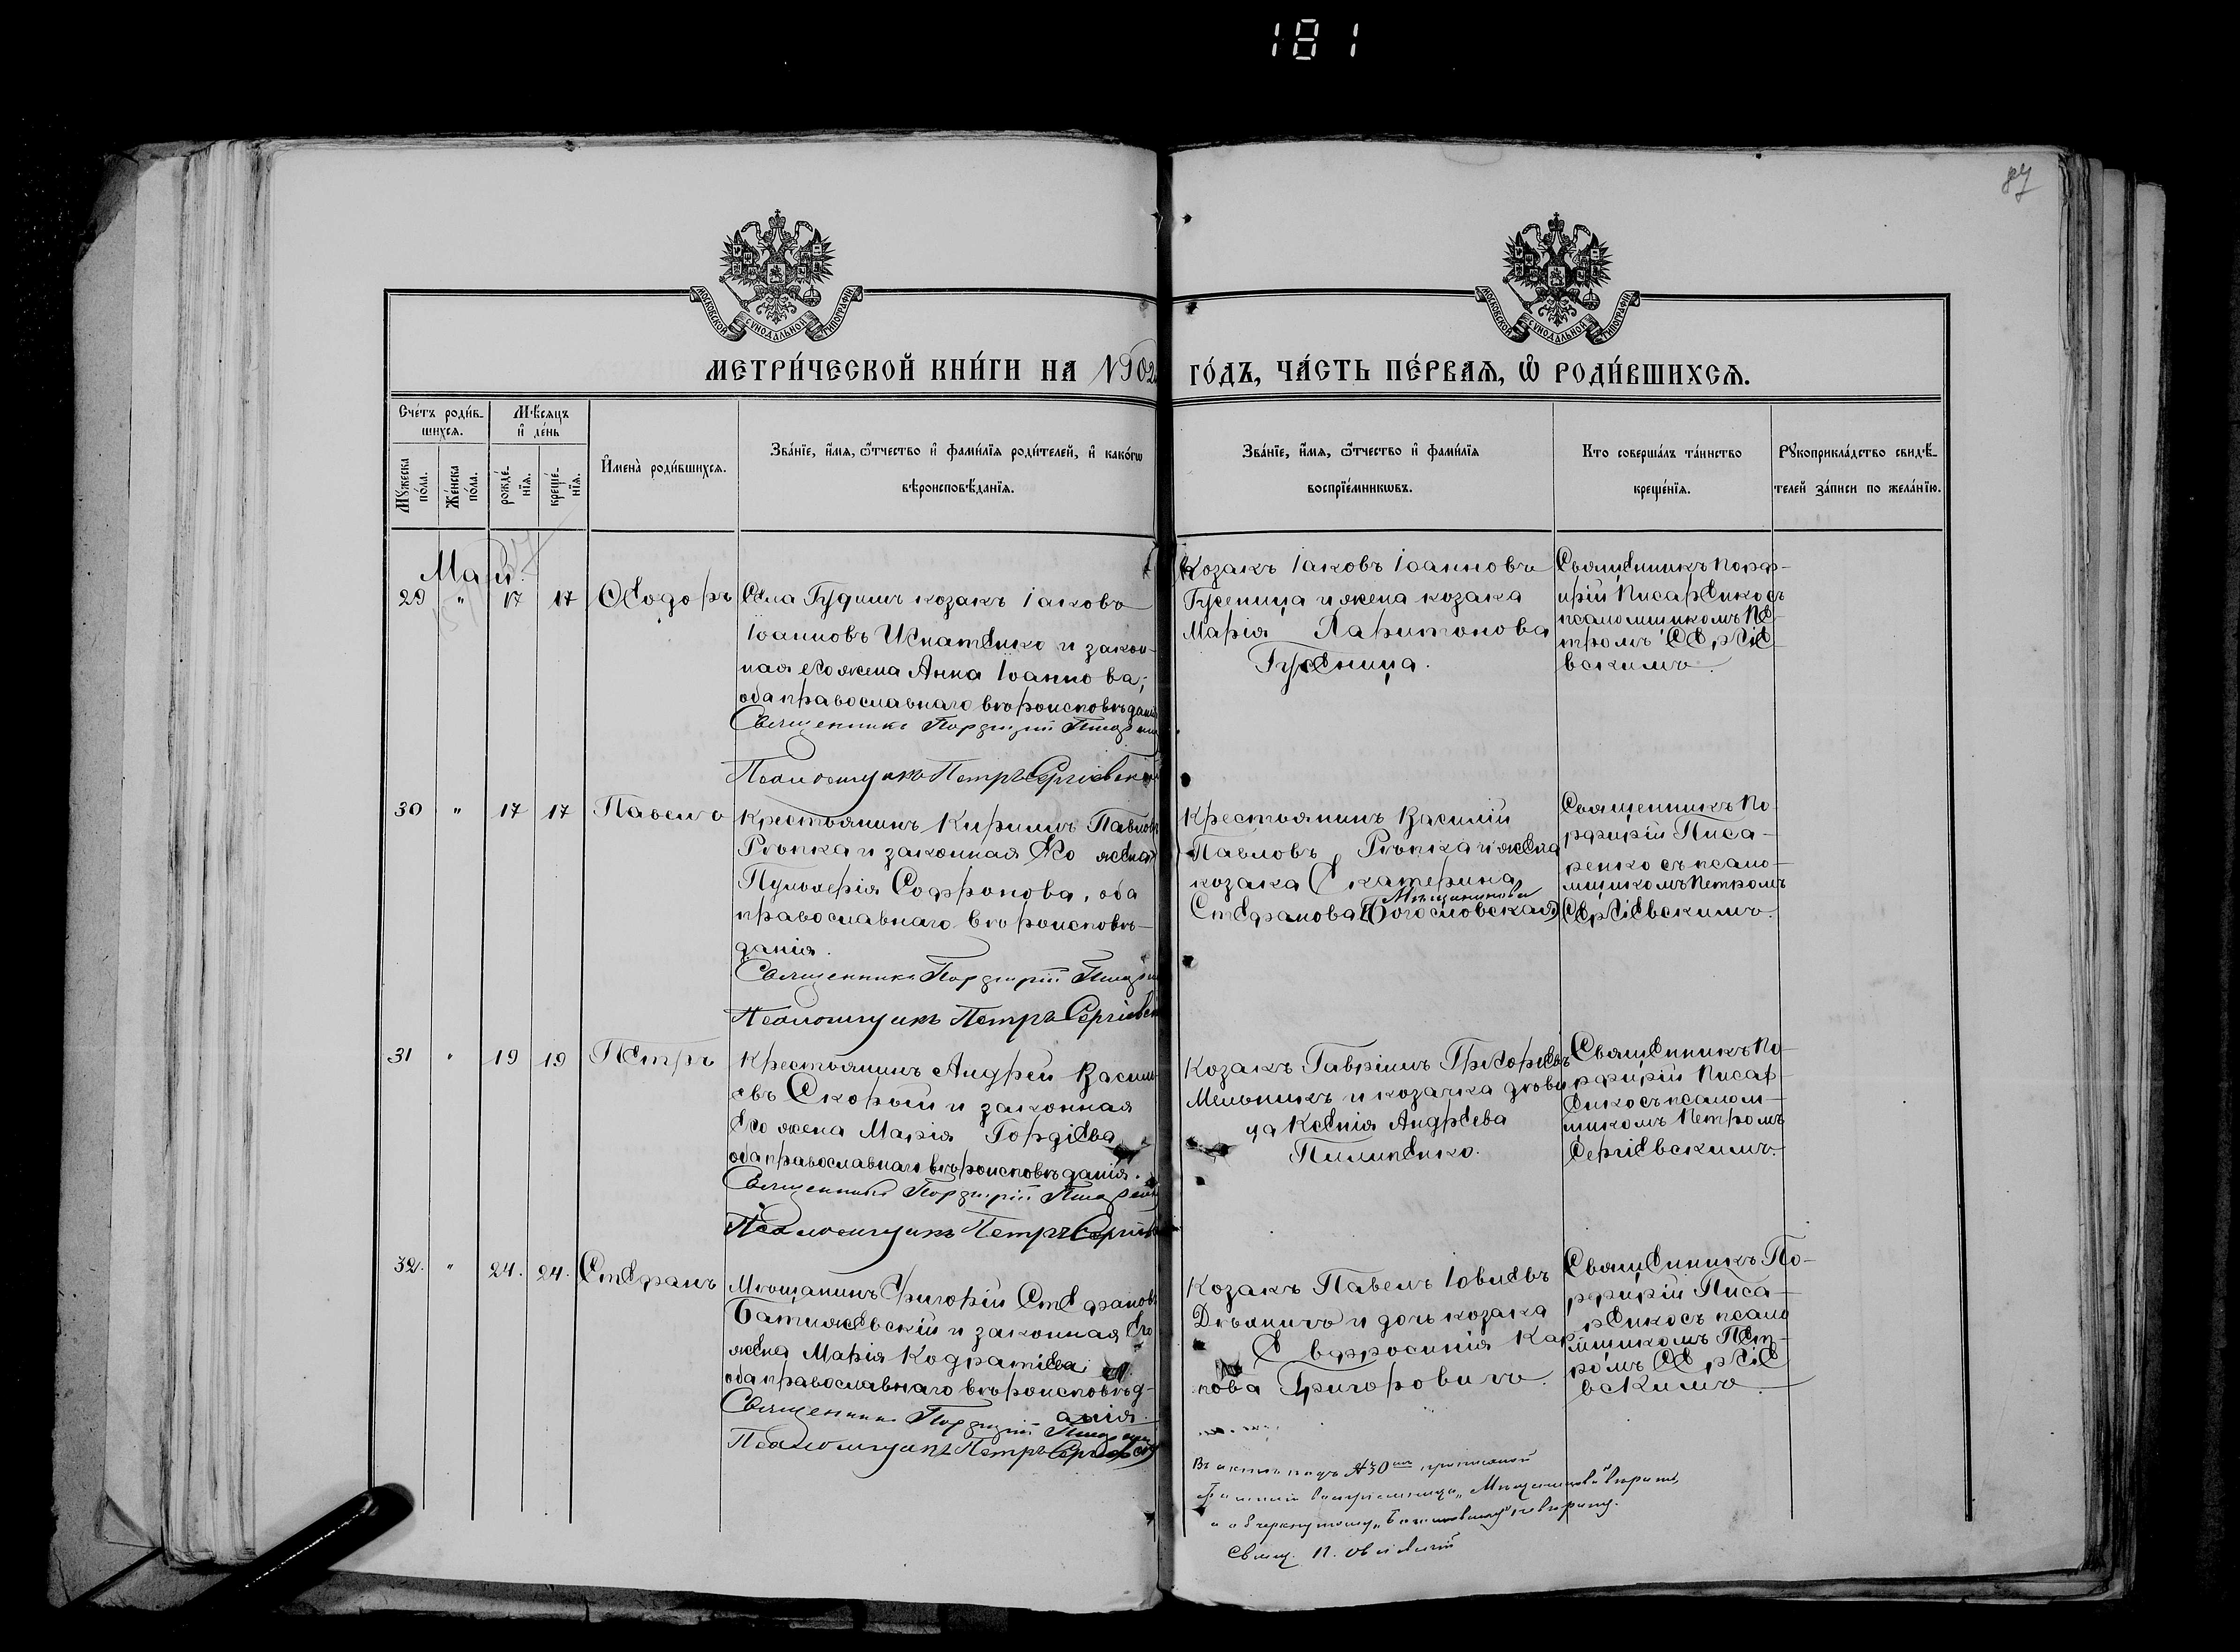 181
87
МОСКОВСКОЙ СѴНОДАЛЬНОЙ ТИПОГРАФІИ
МОСКОВСКОЙ СѴНОДАЛЬНОЙ ТИПОГРАФІИ
МЕТРИ́ЧЕСКОЙ КНИ́ГИ НА 1902 ГО́ДЪ, ЧА́СТЬ ПЕ́РВАѦ, Ѡ҆ РОДИ́ВШИХСѦ.
Сче́тъ роди́в-
шихсѧ.
Мꙋ́жеска
по́ла.
Же́нска
по́ла.
Мѣ́сѧцъ
и҆ де́нь
рожде́-
нїѧ.
креще́-
нїѧ.
И҆мена̀ роди́вшихсѧ.
Зва́нїе, и҆́мѧ, ѻ҆́тчество и҆ фами́лїѧ роди́телей, и҆ како́гѡ
вѣроисповѣ́данїѧ.
Зва́нїе, и҆́мѧ, ѻ҆́тчество и҆ фами́лїѧ
воспрїе́мникѡвъ.
Кто соверша́лъ та́инство
креще́нїѧ.
Рꙋкоприкла́дство свидѣ́-
телей за́писи по жела́нїю.
Май.
29 " 17 17 Ѳеодоръ
Села Гудимъ козакъ Іаковъ
Іоанновъ Игнатенко и закон-
ная его жена Анна Іоаннова;
оба православнаго вѣроисповѣданія
Священникъ Порфирій
Псаломщикъ Петръ Сергіевскій
Козакъ Іаковъ Іоанновъ
Гусеница и жена козака
Марія Харитонова
Гусеница.
Священникъ Порф-
ирій Писаренко съ
псаломщикомъ Пе-
тромъ Сергіе-
вскимъ.
30 " 17 17 Павелъ
Крестьянинъ Кириллъ Павловъ
Рѣпка и законная его жена
Пулхерія Софронова, оба
православнаго вѣроисповѣ-
данія.
Священникъ Порфирій
Псаломщикъ Петръ Сергіевск
Крестьянинъ Василій
Павловъ Рѣпка и жена
козака Екатерина
Стефанова (Богословская)
Священникъ По-
рфирій Писа-
ренко съ псало-
мщикомъ Петромъ
Сергіевскимъ.
31 " 19 19 Петръ
Крестьянинъ Андрей Василь
евъ Скорый и законная
его жена Марія Гордіева,
оба православнаго вѣроисповѣданія.
Священникъ Порфирій
Псаломщикъ Петръ Сергіев
Козакъ Гавріилъ Григорьевъ
Мельникъ и козачка дѣви
ца Ксенія Андреева
Пилипенко.
Священникъ По-
рфирій Писар-
енко съ псалом-
щикомъ Петромъ
Сергіевскимъ.
32. " 24. 24. Стефанъ
Мѣщанинъ Григорій Стефановъ
и законная его
жена Марія Кодратіева;
оба православнаго вѣроисповѣд-
анія.
Священникъ Порфирій
Псаломщикъ Петръ Сергіевскій
Козакъ Павелъ Іовлевъ
и дочь козака
Евфросинія Кар-
пова Григоровичъ.
Священникъ По-
рфирій Писа-
ренко съ псало
мщикомъ Пет-
ромъ Сергіе
вскимъ.
Въ актѣ подъ №30
Свящ. П.